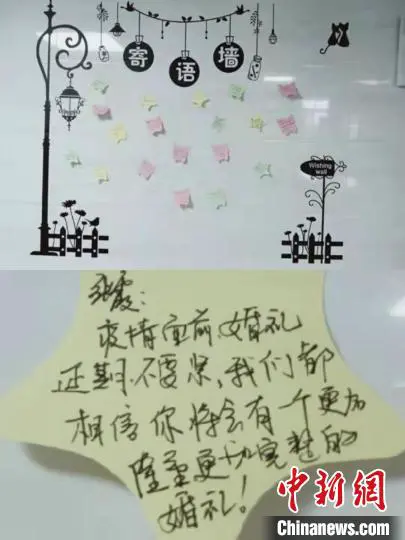 寄语墙
Wishing
wall
张霞:
疫情面前,婚礼
延期不要紧,我们都
相信你将会有一个更加
隆重更加完整的
婚礼!
中新网
Chinanews.com